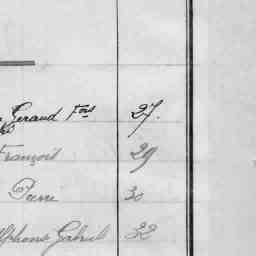 Geraud Fois 27.
François 29
Pierre 30
Alphonse Gabriel 32